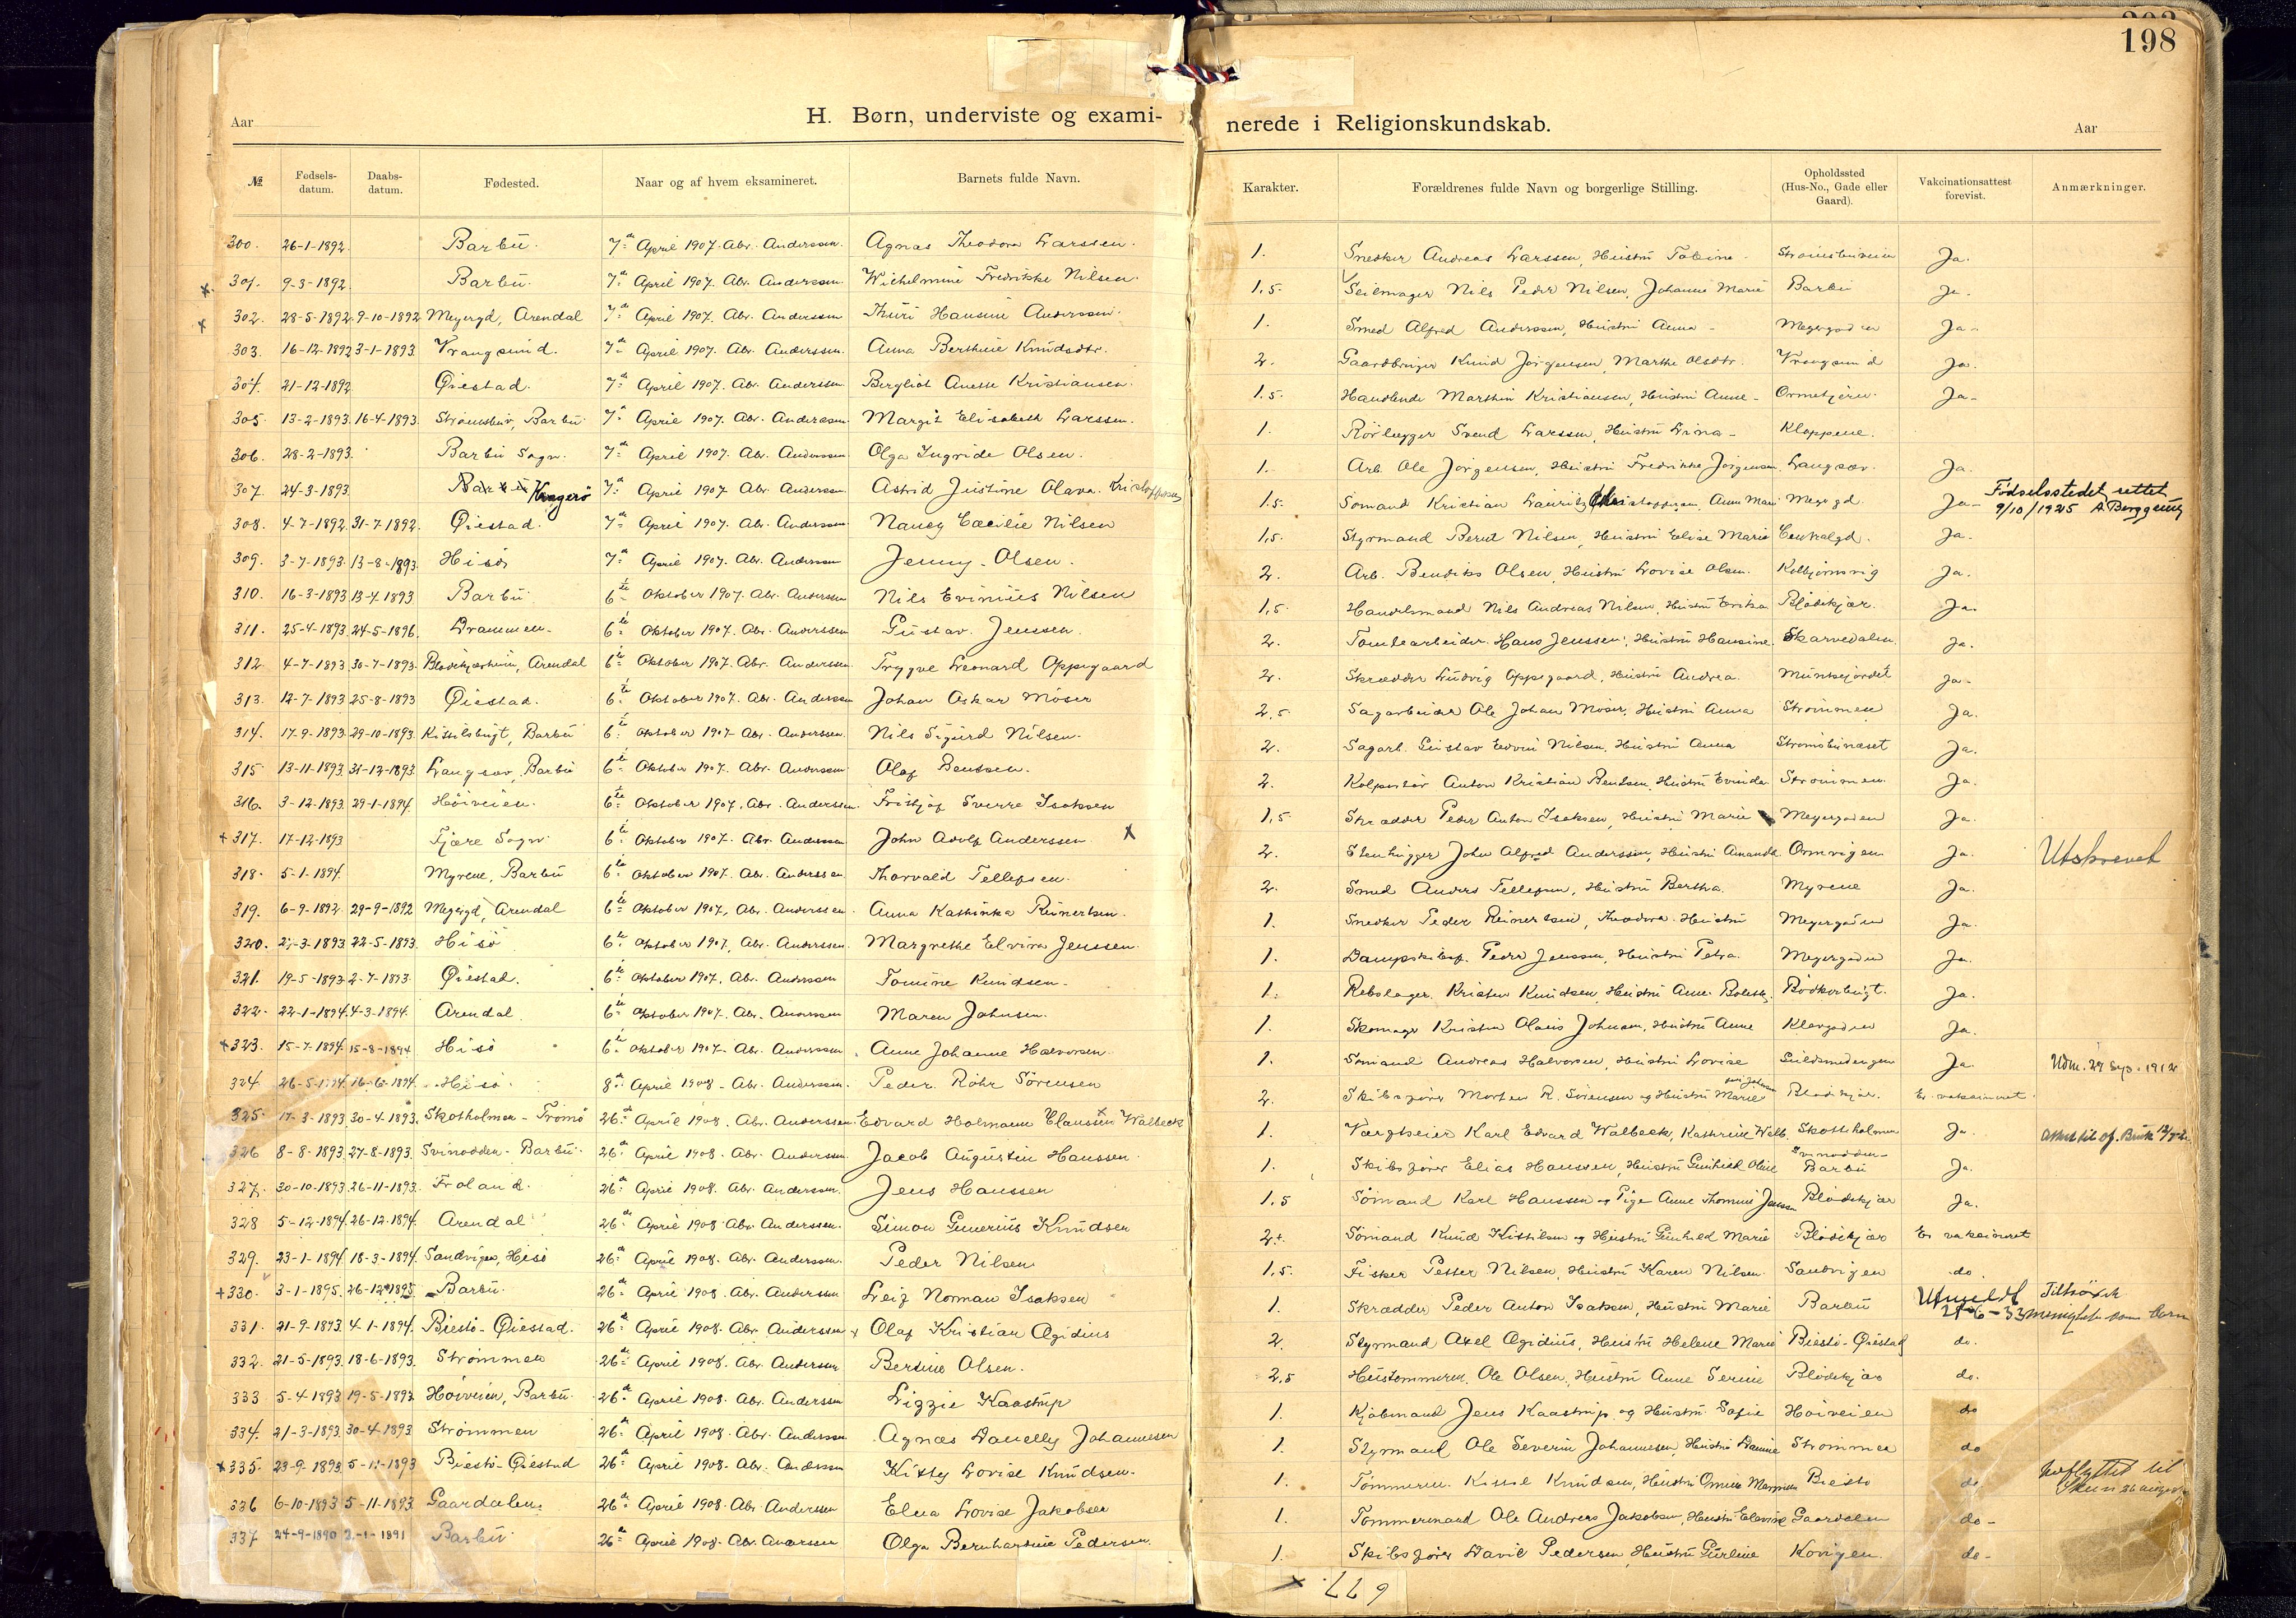 198
Aar
H. Børn, underviste og exami-
nerede i Religionskundskab.
Aar
№ Fødsels-datum. Daabs-datum. Fødested. Naar og af hvem eksamineret. Barnets fulde Navn.
Karakter. Forældrenes fulde Navn og borgerlige Stilling. Opholdssted (Hus-No., Gade eller Gaard). Vakcinationsattest forevist. Anmærkninger.
300. 26-1-1892. Barbu. 7de April 1907. Abr. Anderssen. Agnas Theodora Larssen. 1. Snedker Andreas Larssen, Hustru Tobine Ja.
301. 9-3-1892. Barbu. 7de April 1907. Abr. Anderssen. Wilhelmine Fredrikke Nilsen. 1,5. Seilmager Nils Peder Nilsen, Johanne Marie Barbu Ja.
302. 28-5-1892. 9-10-1892 Meyergd, Arendal 7de April 1907. Abr. Anderssen Thuri Hansine Anderssen. 1. Smed Alfred Anderssen, Hustru Anna - Meyergaden Ja-
303. 16-12-1892 3-1-1893. Vrangsund. 7de April 1907. Abr. Anderssen. Anna Berthine Knudsdtr. 2. Gaardbruger Knud Jörgensen, Marthe Olsdtr. Vrangsund Ja.
304. 21-12-1892 Øiestad. 7de April 1907. Abr. Anderssen Bergliot Anette Kristiansen. 1.5. Handlende Marthin Kristiansen, Hustru Anne - Ja-
305. 13-2-1893. 16-4-1893. Strömsbu, Barbu 7de April 1907. Abr. Anderssen. Margit Elisabeth Larssen. 1. Rörlegger Svend Larssen, Hustru Lina - Kloppene.
306. 28-2-1893. Barbu Sogn. 7de April 1907. Abr. Anderssen Olga Ingride Olsen. 1. Arb. Ole Jörgensen, Hustru Fredrikke Jörgensen. Langsæv. Ja.
307. 24-3-1893. Barbu Kragerö 7de April 1907 Abr. Anderssen Astrid Justine Olava. Kristoffersen 1.5. Sömand Kristian Meyergd. Ja- Födselsstedet rettet
9/10/1925
308. 4-7-1892. 31-7-1892. Øiestad. 7de April 1907. Abr. Anderssen. Nancy Cæcilie Nilsen 1,5. Styrmand Bernt Nilsen, Hustru Elise Marie Ja.
309. 3-7-1893. 13-8-1893. Hisö, 7de April 1907. Abr. Anderssen Jenny Olsen. 2. Arb. Bendiks Olsen, Hustru Lovise Olsen. Kolbjörnsvig Ja.
310. 16-3-1893 13-4-1893. Barbu 6te Oktober 1907. Abr. Anderssen Nils Evinius Nilsen 1,5. Handelsmand Nils Andreas Nilsen, Hustru Erika Blödekjær. Ja.
311. 25-4-1893. 24-5-1896. Drammen- 6te Oktober 1907. Abr. Anderssen Gustav. Jenssen. 2. Tomtearbeider. Hans Jenssen, Hustru Hansine. Skarvedalen. Ja.
312 4-7-1893 30-7-1893. Arendal 6te Oktober 1907. Abr. Anderssen. Trygve Leonard Oppegaard 2. Skrædder Ludvig Oppegaard, Hustru Andrea. Munkejordet Ja-
313. 12-7-1893 25-8-1893 Øiestad. 6te Oktober 1907. Abr. Anderssen Johan Oskar Möser 2,5. Sagarbeider Ole Johan Möser, Hustru Anna Strömmen Ja.
314. 17-9-1893. 29-10-1893. Kittilsbugt, Barbu 6te Oktober 1907 Abr. Anderssen. Nils Sigurd Nilsen. 2. Sagarb. Gustav Edvin Nilsen, Hustru Anna Strömsbuneset Ja.
315 13-11-1893. 31-12-1893. Langsæv, Barbu 6te Oktober 1907. Abr. Anderssen Olaf Bentsen. 2. Kolportör Anton Kristian Bentsen, Hustru Evinda Strömmen. Ja.
316. 3-12-1893. 29-1-1894. Höiveien. 6te Oktober 1907. Abr. Anderssen. Fritjof Sverre Isaksen 1,5. Skrædder Peder Anton Isaksen, Hustru Marie Meyergaden Ja.
+ 317. 17-12-1893 Fjære Sogn 6te Oktober 1907. Abr. Anderssen John Adolf Anderssen. X 2. Stenhugger John Alfred Anderssen, Hustru Amanda Ormvigen Ja. Utskrevet
318. 5-1-1894. Myrene, Barbu 6te Oktober 1907. Abr. Anderssen Thorvald Tellefsen. 2. Smed Anders Tellefsen, Hustru Bertha. Myrene Ja.
319. 6-9-1892. 29-9-1892 Meyergd, Arendal 6te Oktober 1907. Abr. Anderssen. Anna Kathinka Reinertsen. 1. Snedker Peder Reinertsen, Theodora. Hustru Meyergaden Ja.
320. 2-3-1893 22-5-1893. Hisö 6te Oktober 1907. Abr. Anderssen. Margrethe Elvira Jenssen. 1. Peder Jenssen, Hustru Petra. Meyergaden Ja.
321. 19-5-1893 2-7-1893. Øiestad. 6te Oktober 1907. Abr. Anderssen Tomine Knudsen. 1. Rebslager. Kristen Knudsen, Hustru Anne Ja.
322. 22-1-1894. 4-3-1894. Arendal 6te Oktober 1907. Abr. Anderssen Maren Johnsen. 1. Skomager Kristen Olaus Johnsen, Hustru Anne Ja.
+ 323. 15-7-1894. 15-8-1894 Hisö 6te Oktober 1907. Abr. Anderssen. Anne Johanne Halvorsen. 1. Sömand Andreas Halvorsen, Hustru Lovise Ja. Udm. 27 Sep. 1912
324. 26-5-1894. 16-6-1894. Hisö. 8de April 1908. Abr. Anderssen. Peder Röhr Sörensen 2. Skibsförer Morten R. Sörensen og Hustru Marie Blödekjær. Er vaksineret.
325. 17-3-1893. 30-4-1893. Skotholmen - Tromö 26de April 1908. Abr. Anderssen. Edvard Holmann Claussen Walbeck 1. Karl Edvard Walbeck, Kathrine Walb. Skottholmen Ja.
326 8-8-1893. 27-8-1893. Svinodden - Barbu. 26de April 1908. Abr. Anderssen. Jacob Augustin Hanssen. 1. Skibsförer Elias Hanssen, Hustru Gunhild Oline Svinodden - Barbu Ja.
327. 30-10-1893. 26-11-1893. Froland. 26de April 1908. Abr. Anderssen. Jens Hanssen 1.5 Sömand Karl Hanssen og Pige Anne Blödekjær Ja.
328 5-12-1894. 26-12-1894. Arendal 26de April 1908 Abr. Anderssen. Simon Gunerius Knudsen 2+. Sömand Knud Kittilsen og Hustru Gunhild Marie Blödekjær Er vaksineret
329. 23-1-1894. 18-3-1894. Sandvigen, Hisö 26de April 1908. Abr. Anderssen. Peder Nilsen 1,5. Fisker Petter Nilsen, Hustru Karen Nilsen. Sandvigen do.
+ 330. 3-1-1895. 26-12-1895. Barbu. 26de April 1908. Abr. Anderssen Leif Norman Isaksen 1. Skrædder Peder Anton Isaksen, Hustru Marie Barbu Utmeldt
29-6-33
331. 21-9-1893. 4-1-1894. Biestö - Øiestad. 26de April 1908. Abr. Anderssen Olaf Kristian Ægidius 2. Styrmand Axel Ægidius, Hustru Helene Marie Biestö - Øiestad do.
332. 21-5-1893. 18-6-1893. Strömmen 26de April 1908. Abr. Anderssen Bertine Olsen. 2,5 Hustömmerm. Ole Olsen, Hustru Anne Serine Blödekjær do.
333 5-4-1893. 19-5-1893. Höiveien, Barbu. 26de April 1908. Abr. Anderssen Lizzie Kaastrup 1. Kjöbmand Jens Kaastrup og Hustru Sofie Höiveien do
334. 21-3-1893. 30-4-1893 Strömmen 26de April 1908. Abr. Anderssen Agnæs Danelly Johannesen 1. Styrmand Ole Severin Johannesen, Hustru Strömmen do
+ 335. 23-9-1893. 5-11-1893 Biestö - Øiestad 26de April 1908. Abr. Anderssen Kitty Lovise Knudsen. 1. Tömmerm. Kittil Knudsen, Hustru Biestö do
336 6-10-1893 5-11-1893. Gaardalen. 26de April 1908. Abr. Anderssen Elna Lovise Jakobsen 1. Tömmermand Ole Andreas Jakobsen, Hustru Gaardalen do-
337 24-9-1890 2-1-1891 Barbu 26de April 1908. Abr. Anderssen Olga Bernhardine Pedersen. 1. Skibsförer David Pedersen, Hustru Gurline Kovigen. do-